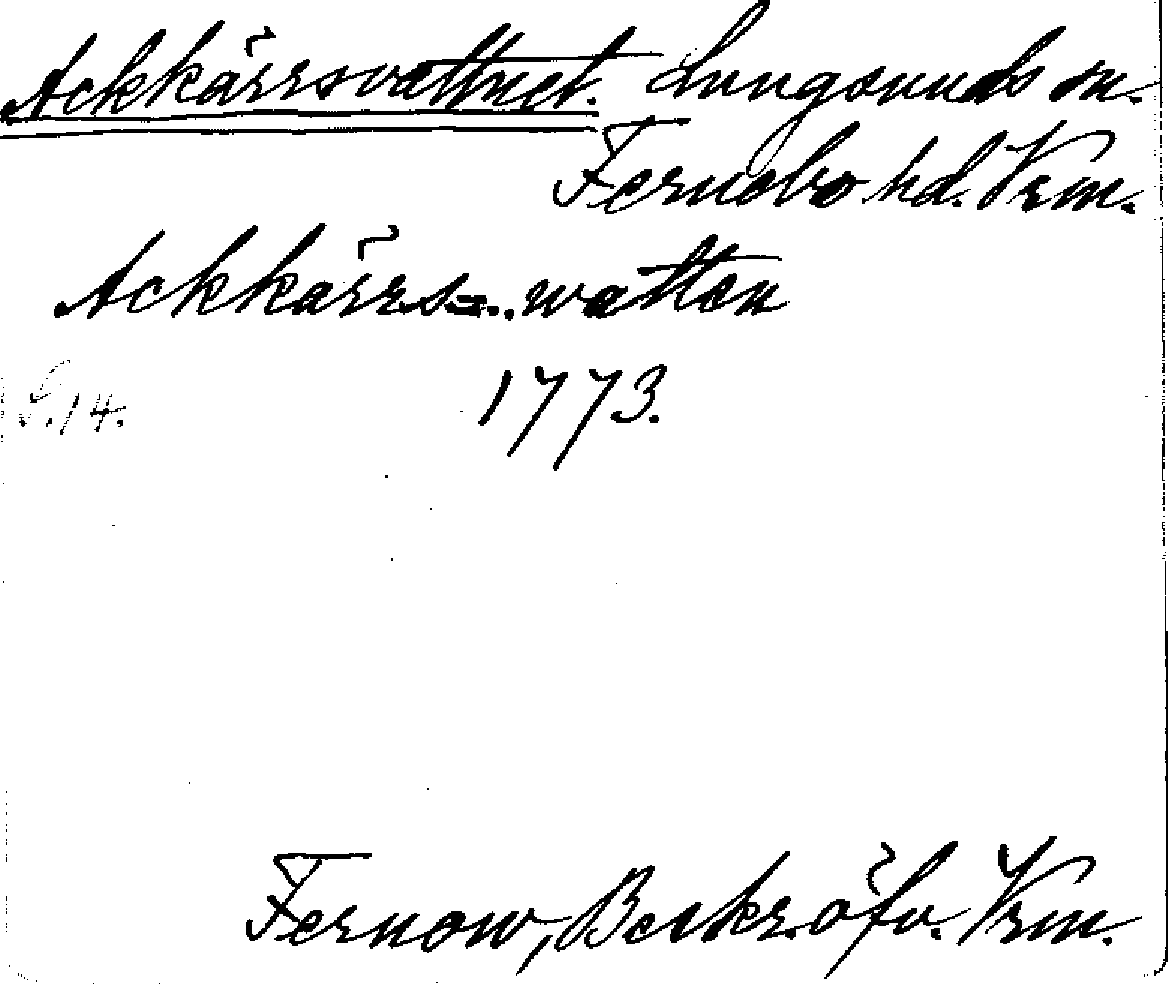 Ackkärrsvattnet. Lungsunds sn.
Fernebo hd. Vrm.
Ackkärrs=..watten
1773.
S.14.
Fernow, Beskr. öfv. Vrm.